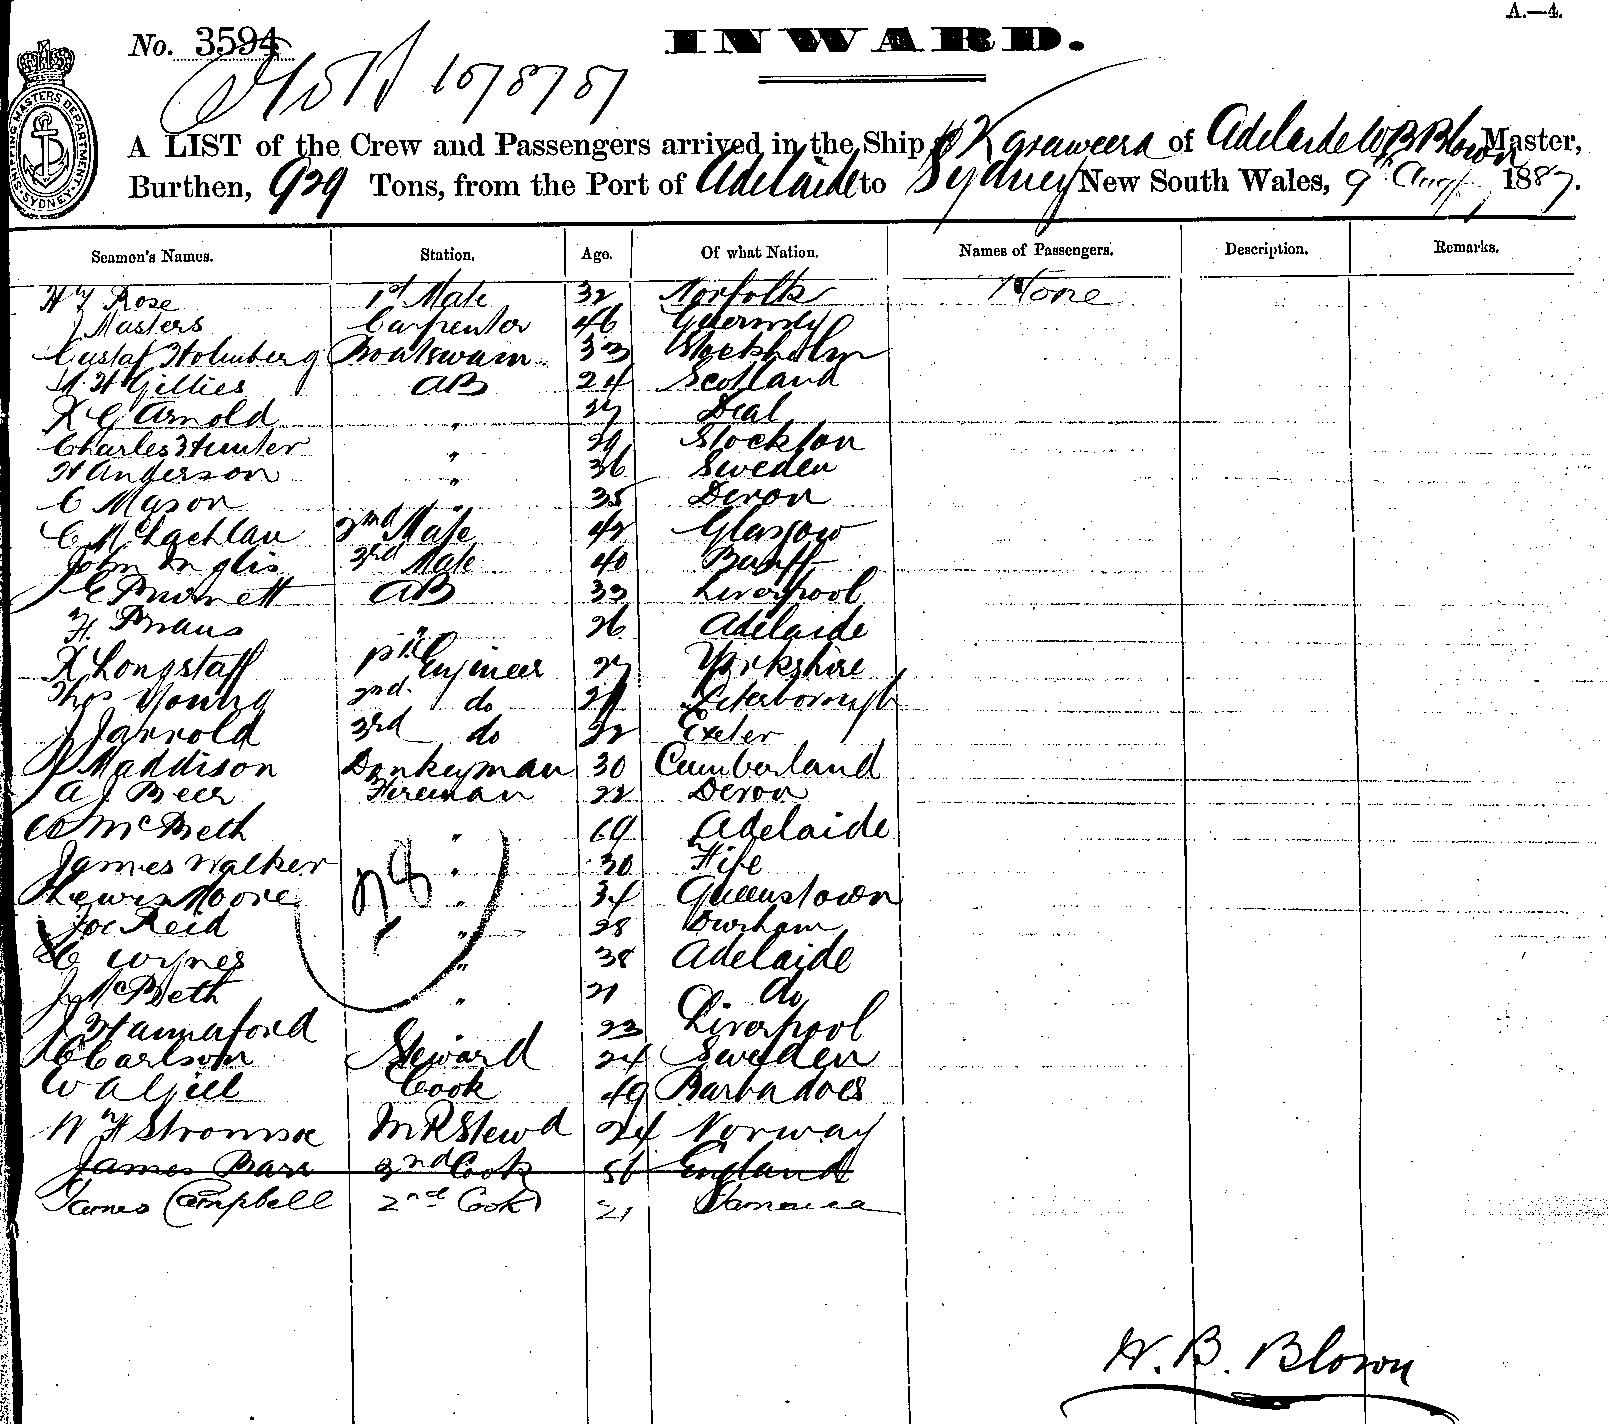 A.—4.
No. 3594
INWARD.
10/8/87
A LIST of the Crew and Passengers arrived in the Ship Karaweera of Adelaide W B Blown Master,
Burthen, 929 Tons, from the Port of Adelaide to Sydney New South Wales, 9th Augt 1887.
Seamen's Names. Station. Age. Of what Nation. Names of Passengers. Description. Remarks.
H Y Rose 1st Mate 32 Norfolk None
J Masters Carpenter 46 Guernsey
Gustaf Holmberg Boatswain 33 Stockholm
M. H Gillies AB 24 Scotland
R G Arnold " 27 Deal
Charles Hunter " 29 Stockton
H Anderson " 36 Sweden
C Mason " 35 Devon
C McLachlan 2nd Mate 42 Glasgow
John Inglis 3rd Mate 40 Banff
J E Burnett AB 33 Liverpool
H. Braus " 26 Adelaide
R Longstaff 1st Engineer 27 Yorkshire
Thos Young 2nd do 29 Peterborough
J Jarrold 3rd do 22 Exeter
J Maddison Donkeyman 30 Cumberland
A J Beer Fireman 22 Devon
McBeth " 69 Adelaide
James Walker " 30 Fife
Lewis Moore " 34 Queenstown
Joe Reid " 28 Durham
C Wynes " 38 Adelaide
J McBeth " 21 do
J Hannaford " 23 Liverpool
C Carlson Steward 24 Sweden
W A Gill Cook 49 Barbadoes
N H Stromsoe M R Stewd 24 Norway
James Barr 2nd Cook 56 England
James Campbell 2nd Cook 21 Jamaica
28
W. B. Blown